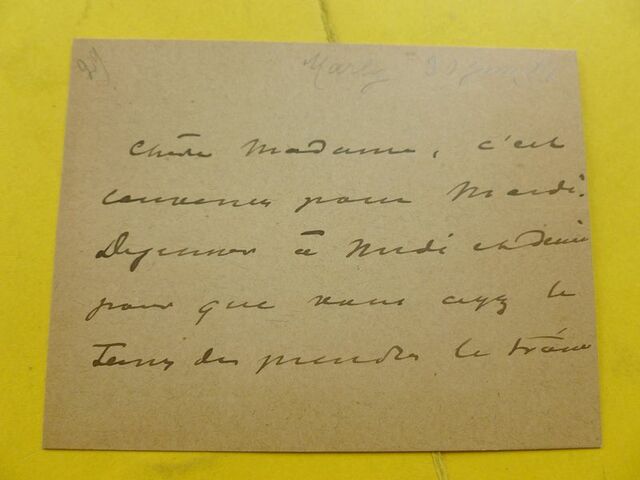 Marly
Chère Madame, c'est
convenu pour Mardi.
Dejeuner à Midi et Demi
pour que vous ayez le
Tems de prendre le train